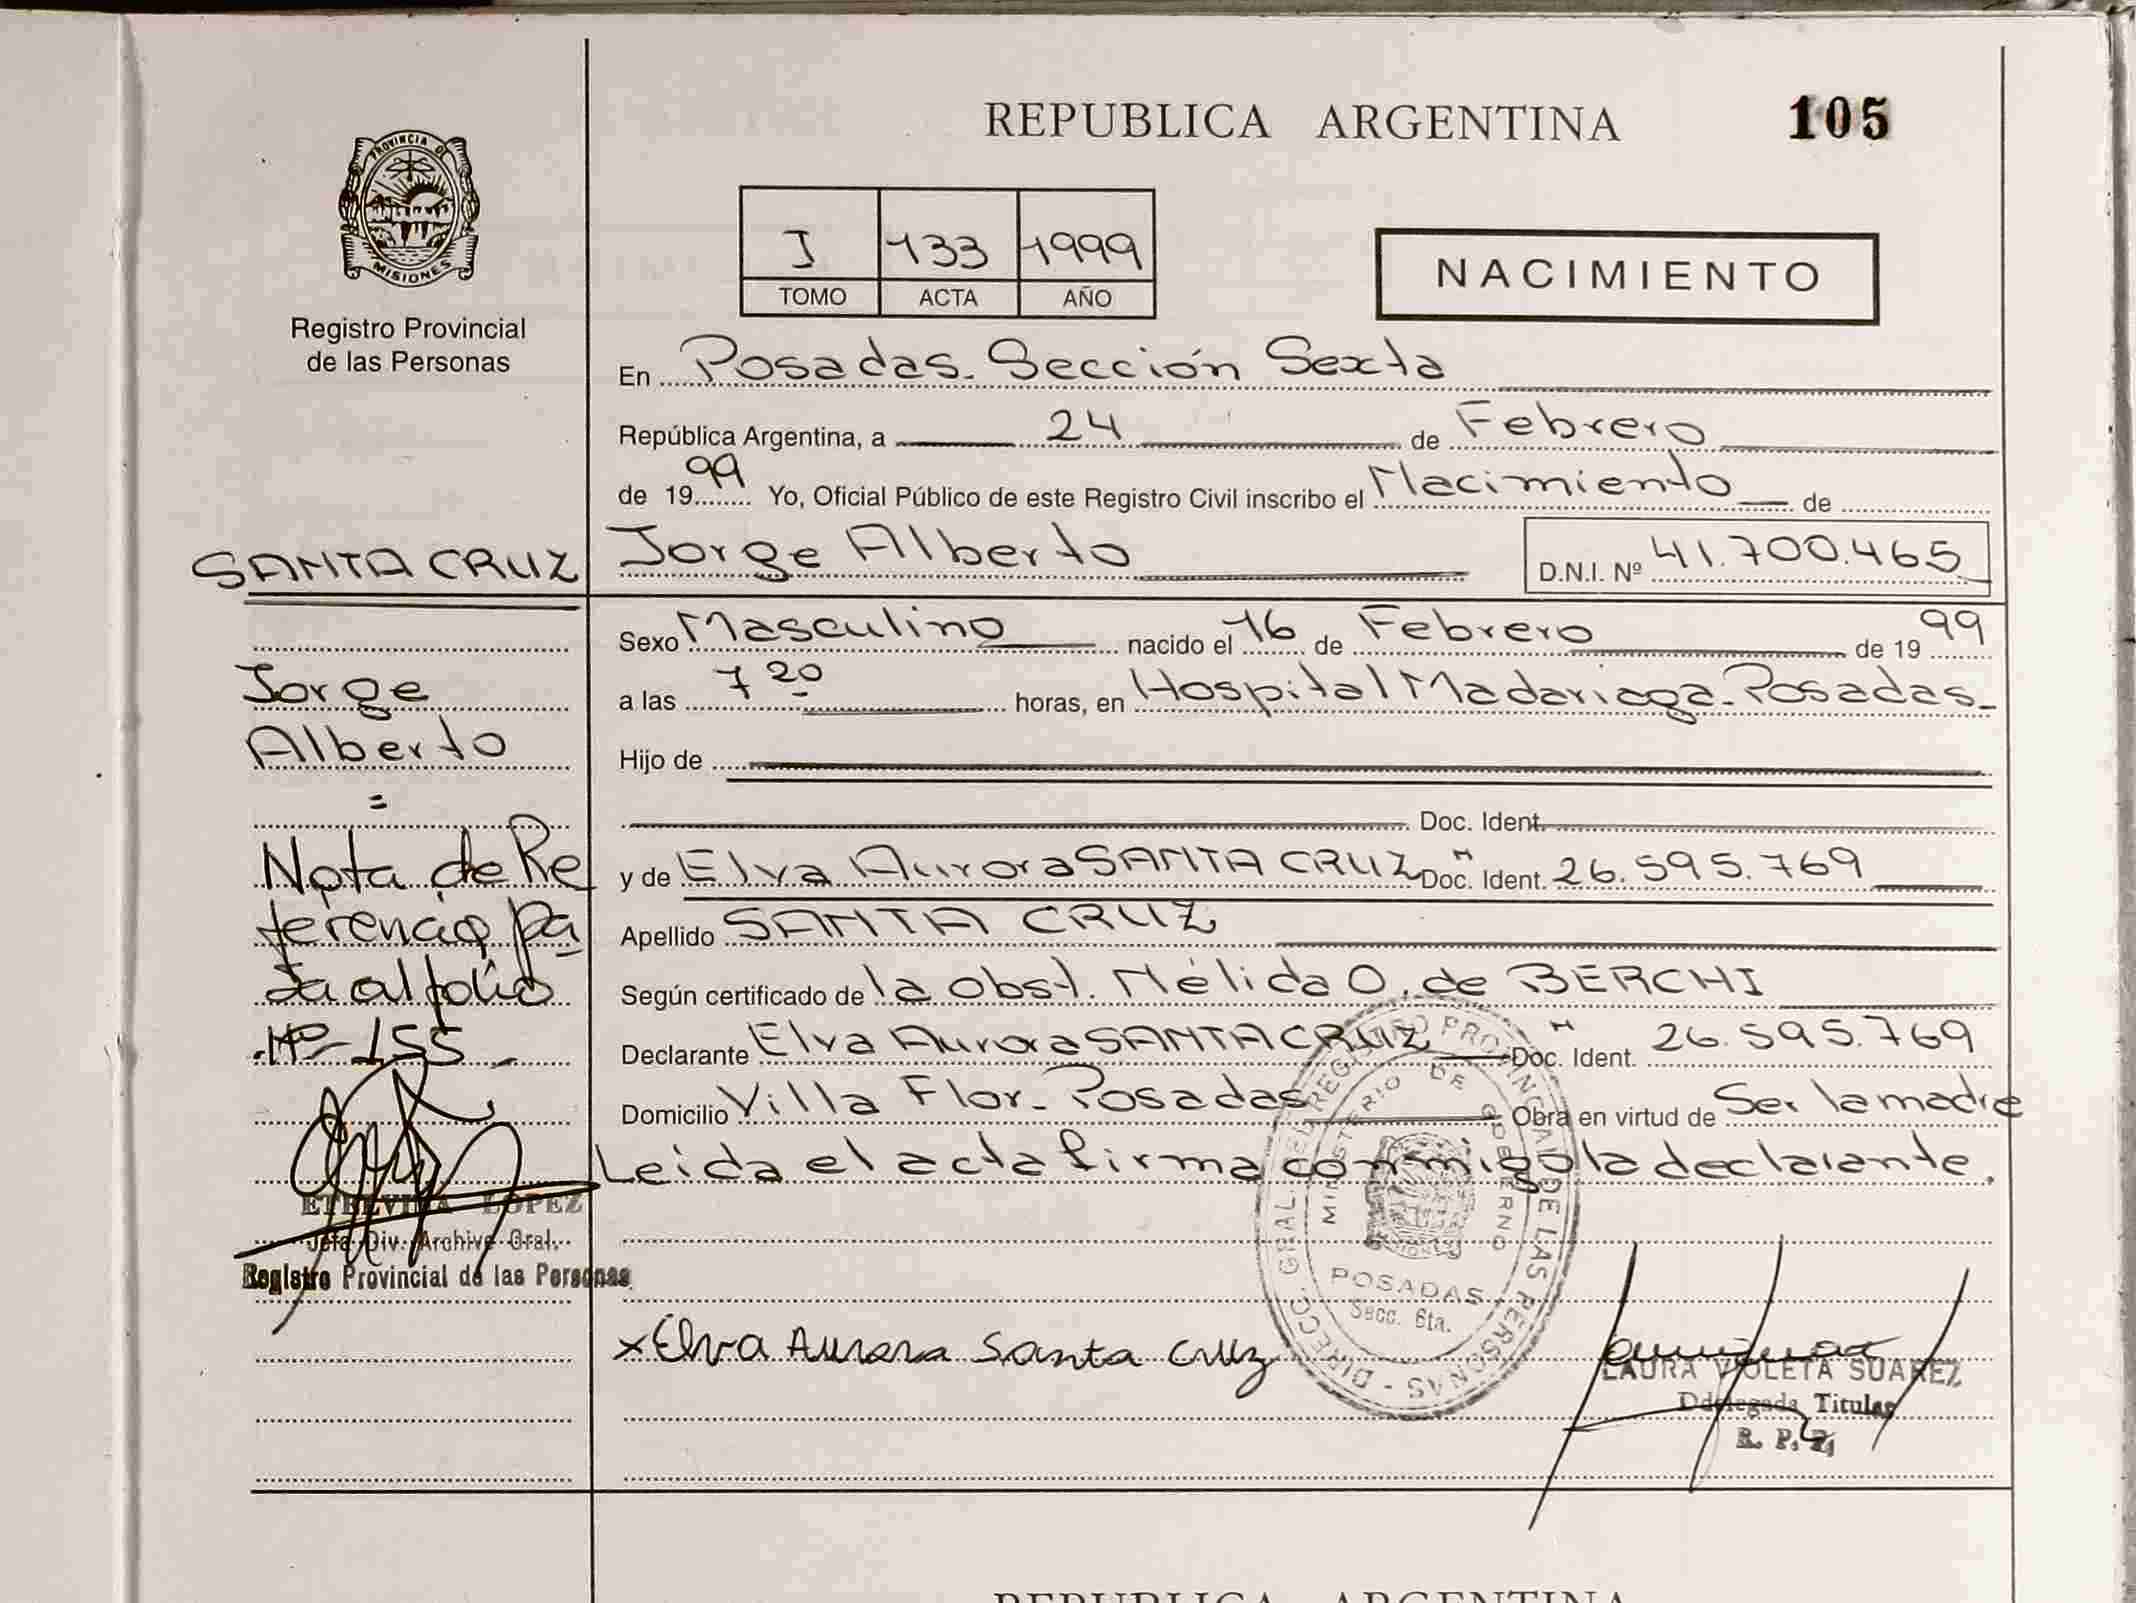 REPUBLICA ARGENTINA
105
PROVINCIA DE
MISIONES
Registro Provincial
de las Personas
I 133 1999
TOMO ACTA AÑO
NACIMIENTO
En Posadas. Sección Sexta
República Argentina, a 24 de Febrero
de 19 99 Yo, Oficial Público de este Registro Civil inscribo el Nacimiento de
SANTA CRUZ
Jorge Alberto D.N.I. Nº 41.700.465
Sexo Masculino nacido el 16 de Febrero de 19 99
a las 7 20 horas, en Hospital Madariaga. Posadas
Hijo de
Doc. Ident.
y de Elva Aurora SANTA CRUZ Doc. Ident. 26.595.769
Apellido SANTA CRUZ
Según certificado de la obst. Nélida O. de BERCHI
Declarante Elva Aurora SANTA CRUZ Doc. Ident. 26.595.769
Domicilio Villa Flor. Posadas Obra en virtud de Ser la madre
Leida el acta firma conmigo la declarante.
Jorge
Alberto
=
Nota de Re
ferencia pa
sa al folio
Nº 155
ETELVINA LOPEZ
Jefa Div. Archivo Gral.
Registro Provincial de las Personas
x Elva Aurora Santa Cruz
DIRECC. GRAL. DEL REGISTRO PROVINCIAL DE LAS PERSONAS
MINISTERIO DE GOBIERNO
MISIONES
POSADAS
Secc. 6ta.
LAURA VIOLETA SUAREZ
Delegada Titular
R. P. P.
REPUBLICA ARGENTINA